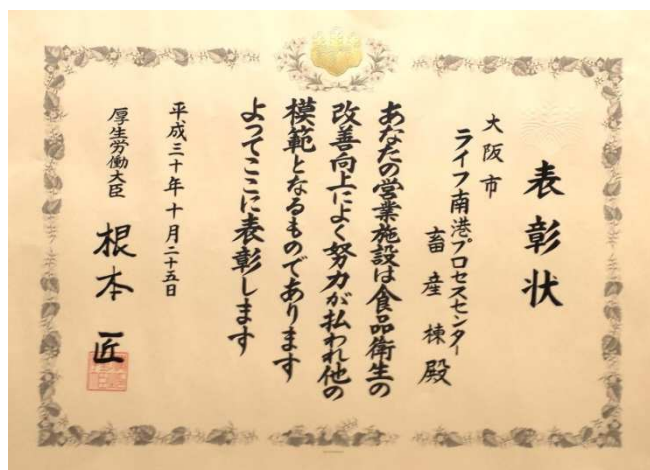 表彰状
大阪市
ライフ南港プロセスセンター
畜産棟殿
あなたの営業施設は食品衛生の
改善向上によく努力が払われ他の
模範となるものであります
よってここに表彰します
平成三十年十月二十五日
厚生労働大臣 根本匠